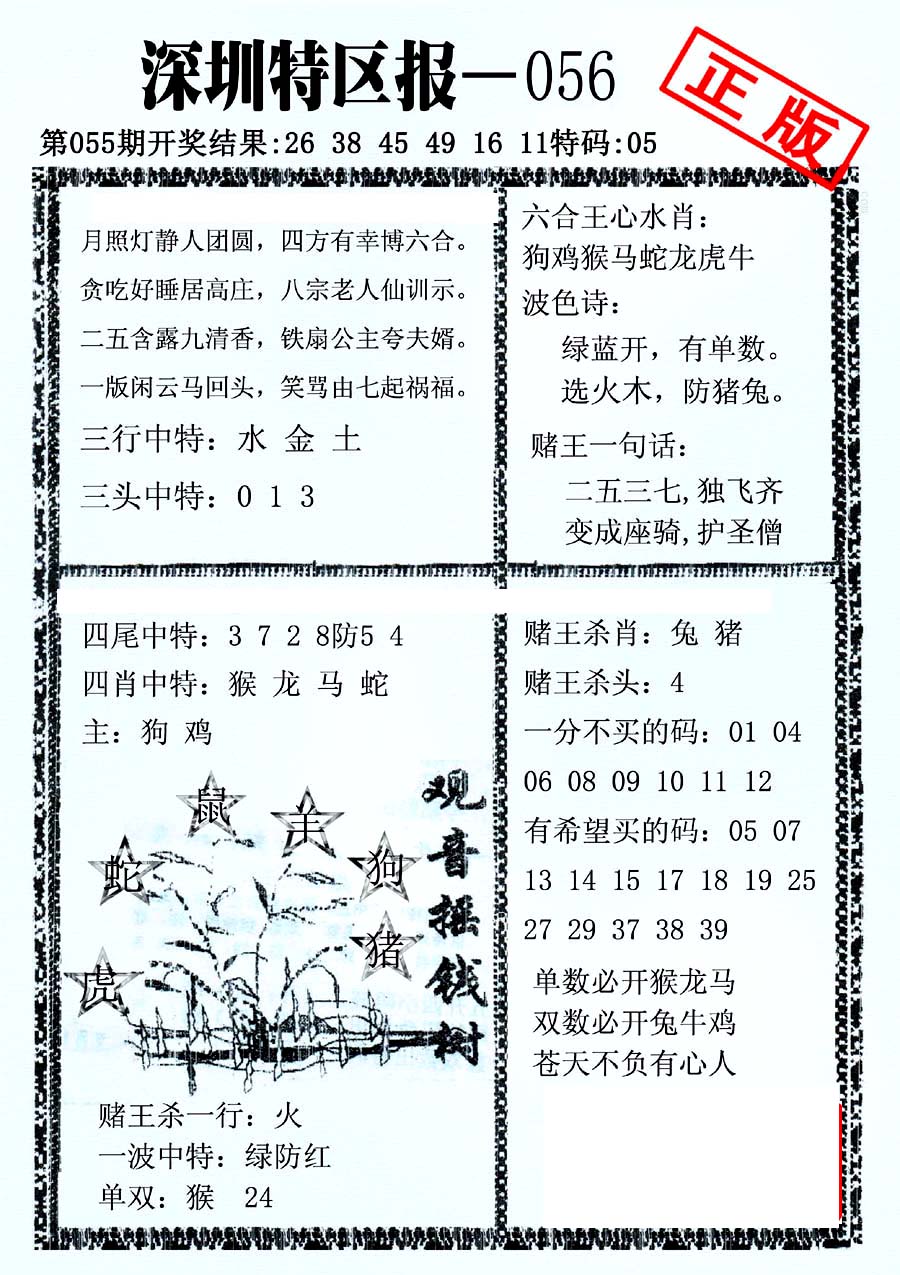 深圳特区报—056
正版
第055期开奖结果:26 38 45 49 16 11特码:05
月照灯静人团圆，四方有幸博六合。
贪吃好睡居高庄，八宗老人仙训示。
二五含露九清香，铁扇公主夸夫婿。
一版闲云马回头，笑骂由七起祸福。
三行中特：水 金 土
三头中特：0 1 3
六合王心水肖：
狗鸡猴马蛇龙虎牛
波色诗：
绿蓝开，有单数。
选火木，防猪兔。
赌王一句话：
二五三七,独飞齐
变成座骑,护圣僧
四尾中特：3 7 2 8防5 4
四肖中特：猴 龙 马 蛇
主：狗 鸡
鼠
羊
蛇
狗
猪
虎
观音摇钱树
赌王杀一行：火
一波中特：绿防红
单双：猴 24
赌王杀肖：兔 猪
赌王杀头：4
一分不买的码：01 04
06 08 09 10 11 12
有希望买的码：05 07
13 14 15 17 18 19 25
27 29 37 38 39
单数必开猴龙马
双数必开兔牛鸡
苍天不负有心人